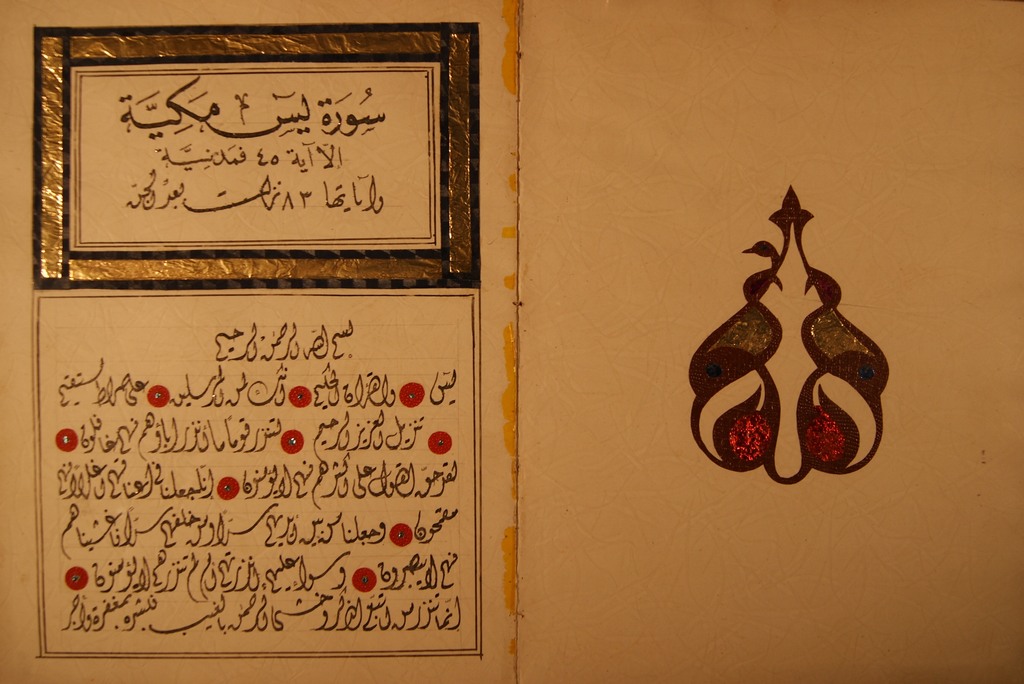 سُورَة يٰسٓ مَكِيَّة
الا آية ٤٥ فمَدَنيَّة
وآياتها ٨٣ نزلت بعد الجن
بسم الله الرحمن الرحيم
يٰسٓ والقرآن الحكيم انك لمن المرسلين على صراط مستقيم
تنزيل العزيز الرحيم لتنذر قوما ما انذر اباؤهم فهم غافلون
لقد حق القول على اكثرهم فهم لا يؤمنون انا جعلنا في اعناقهم اغلالا فهي
مقمحون وجعلنا من بين ايديهم سدا ومن خلفهم سدا فاغشيناهم
فهم لا يبصرون وسواء عليهم ءانذرتهم ام لم تنذرهم لا يؤمنون
انما تنذر من اتبع الذكر وخشي الرحمن بالغيب فبشره بمغفرة واجر